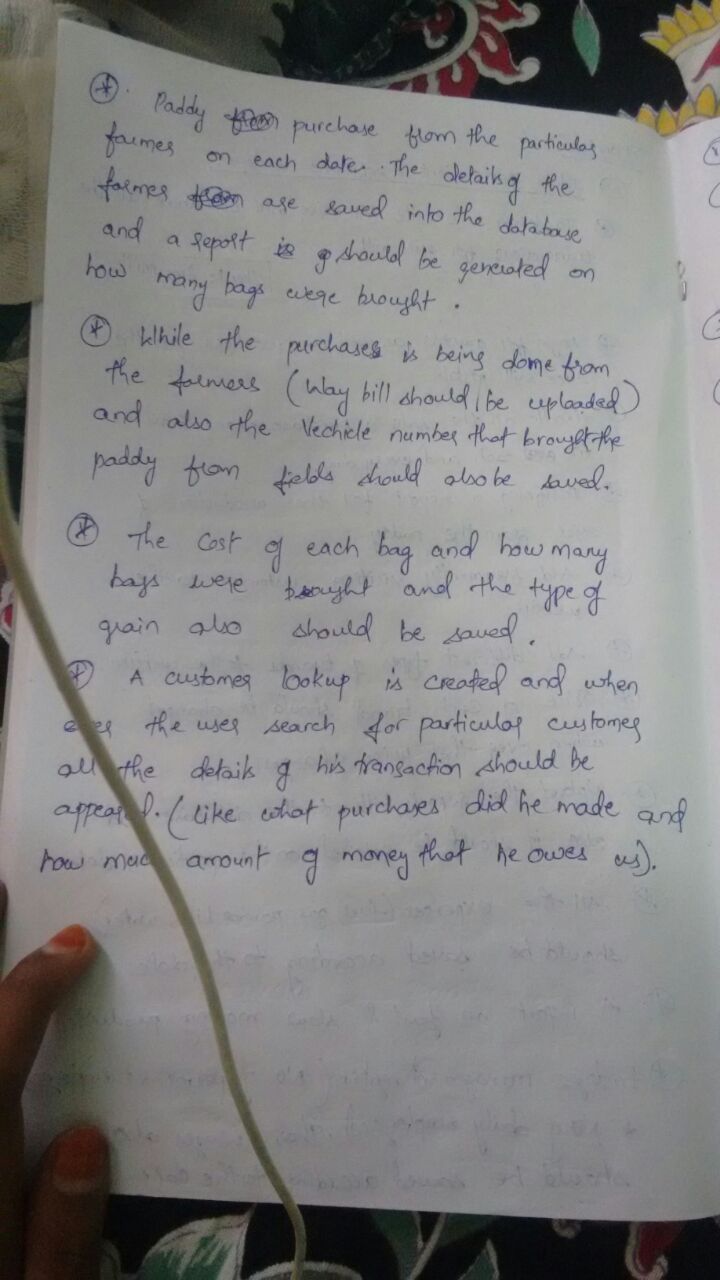 * . Paddy purchase from the particular
farmer on each date. The details of the
farmer are saved into the database
and a report should be generated on
how many bags were brought .
* While the purchases is being dome from
the farmers (Way bill should be uploaded)
and also the Vechicle number that brought the
paddy from fields should also be saved.
* The Cost of each bag and how many
bags were brought and the type of
grain also should be saved .
* A customer lookup is created and when
ever the user search for particular customer
all the details of his transaction should be
appeared. (like what purchases did he made and
how much amount of money that he owes us).